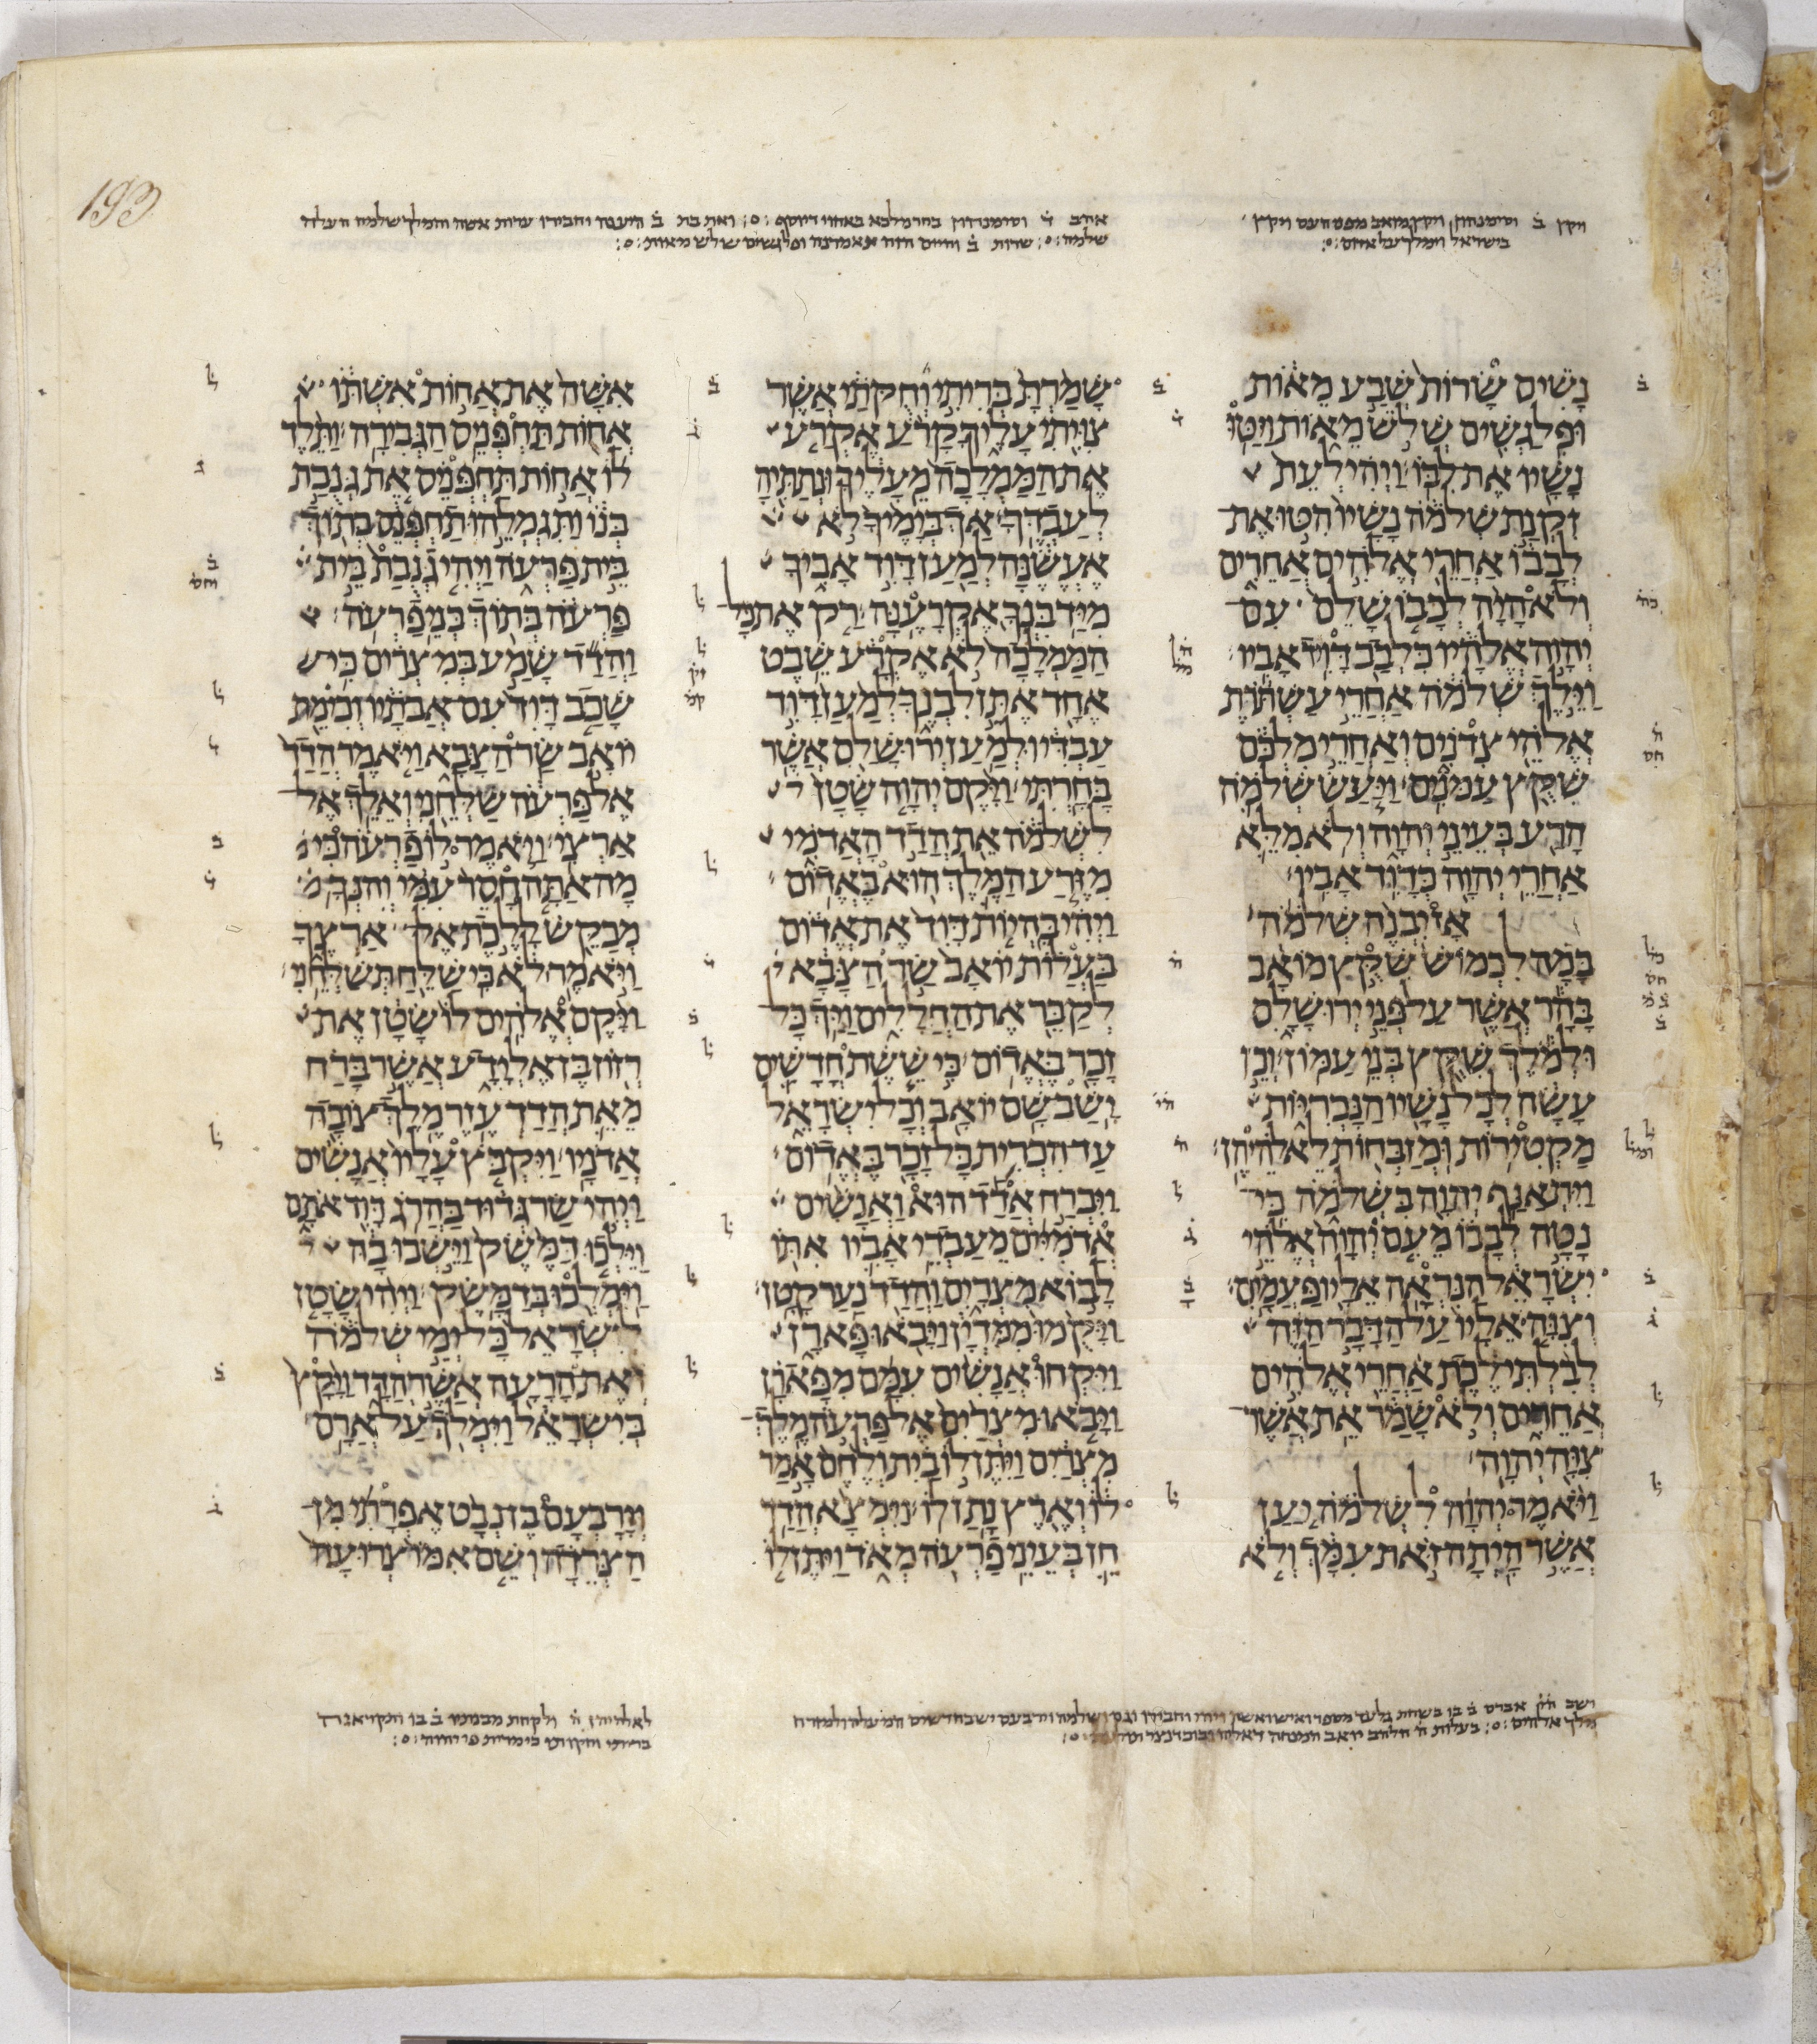 193
נָשִׁים שָׂרוֹת שְׁבַע מֵאוֹת
וּפִלַגְשִׁים שְׁלֹשׁ מֵאוֹת וַיַּטּוּ
נָשָׁיו אֶת לִבּוֹ׃ וַיְהִי לְעֵת
זִקְנַת שְׁלֹמֹה נָשָׁיו הִטּוּ אֶת
לְבָבוֹ אַחֲרֵי אֱלֹהִים אֲחֵרִים
וְלֹא הָיָה לְבָבוֹ שָׁלֵם עִם
יְהוָה אֱלֹהָיו כִּלְבַב דָּוִיד אָבִיו׃
וַיֵּלֶךְ שְׁלֹמֹה אַחֲרֵי עַשְׁתֹּרֶת
אֱלֹהֵי צִדֹנִים וְאַחֲרֵי מִלְכֹּם
שִׁקֻּץ עַמֹּנִים׃ וַיַּעַשׂ שְׁלֹמֹה
הָרַע בְּעֵינֵי יְהוָה וְלֹא מִלֵּא
אַחֲרֵי יְהוָה כְּדָוִד אָבִיו׃
אָז יִבְנֶה שְׁלֹמֹה
בָּמָה לִכְמוֹשׁ שִׁקֻּץ מוֹאָב
בָּהָר אֲשֶׁר עַל פְּנֵי יְרוּשָׁלִָם
וּלְמֹלֶךְ שִׁקֻּץ בְּנֵי עַמּוֹן׃ וְכֵן
עָשָׂה לְכָל נָשָׁיו הַנָּכְרִיּוֹת
מַקְטִירוֹת וּמְזַבְּחוֹת לֵאלֹהֵיהֶן׃
וַיִּתְאַנַּף יְהוָה בִּשְׁלֹמֹה כִּי
נָטָה לְבָבוֹ מֵעִם יְהוָה אֱלֹהֵי
יִשְׂרָאֵל הַנִּרְאָה אֵלָיו פַּעֲמָיִם׃
וְצִוָּה אֵלָיו עַל הַדָּבָר הַזֶּה
לְבִלְתִּי לֶכֶת אַחֲרֵי אֱלֹהִים
אֲחֵרִים וְלֹא שָׁמַר אֵת אֲשֶׁר
צִוָּה יְהוָה׃
וַיֹּאמֶר יְהוָה לִשְׁלֹמֹה יַעַן
אֲשֶׁר הָיְתָה זֹּאת עִמָּךְ וְלֹא
שָׁמַרְתָּ בְּרִיתִי וְחֻקֹּתַי אֲשֶׁר
צִוִּיתִי עָלֶיךָ קָרֹעַ אֶקְרַע
אֶת הַמַּמְלָכָה מֵעָלֶיךָ וּנְתַתִּיהָ
לְעַבְדֶּךָ׃ אַךְ בְּיָמֶיךָ לֹא
אֶעֱשֶׂנָּה לְמַעַן דָּוִד אָבִיךָ
מִיַּד בִּנְךָ אֶקְרָעֶנָּה׃ רַק אֶת כָּל
הַמַּמְלָכָה לֹא אֶקְרָע שֵׁבֶט
אֶחָד אֶתֵּן לִבְנֶךָ לְמַעַן דָּוִד
עַבְדִּי וּלְמַעַן יְרוּשָׁלִַם אֲשֶׁר
בָּחָרְתִּי׃ וַיָּקֶם יְהוָה שָׂטָן
לִשְׁלֹמֹה אֵת הֲדַד הָאֲדֹמִי
מִזֶּרַע הַמֶּלֶךְ הוּא בֶּאֱדוֹם׃
וַיְהִי בִּהְיוֹת דָּוִד אֶת אֱדוֹם
בַּעֲלוֹת יוֹאָב שַׂר הַצָּבָא
לְקַבֵּר אֶת הַחֲלָלִים וַיַּךְ כָּל
זָכָר בֶּאֱדוֹם׃ כִּי שֵׁשֶׁת חֳדָשִׁים
יָשַׁב שָׁם יוֹאָב וְכָל יִשְׂרָאֵל
עַד הִכְרִית כָּל זָכָר בֶּאֱדוֹם׃
וַיִּבְרַח אֲדַד הוּא וַאֲנָשִׁים
אֲדֹמִיִּים מֵעַבְדֵי אָבִיו אִתּוֹ
לָבוֹא מִצְרָיִם וַהֲדַד נַעַר קָטָן׃
וַיָּקֻמוּ מִמִּדְיָן וַיָּבֹאוּ פָּארָן
וַיִּקְחוּ אֲנָשִׁים עִמָּם מִפָּארָן
וַיָּבֹאוּ מִצְרַיִם אֶל פַּרְעֹה מֶלֶךְ
מִצְרַיִם וַיִּתֶּן לוֹ בַיִת וְלֶחֶם אָמַר
לוֹ וְאֶרֶץ נָתַן לוֹ׃ וַיִּמְצָא הֲדַד
חֵן בְּעֵינֵי פַרְעֹה מְאֹד וַיִּתֶּן לוֹ
אִשָּׁה אֶת אֲחוֹת אִשְׁתּוֹ
אֲחוֹת תַּחְפְּנֵיס הַגְּבִירָה׃ וַתֵּלֶד
לוֹ אֲחוֹת תַּחְפְּנֵיס אֵת גְּנֻבַת
בְּנוֹ וַתִּגְמְלֵהוּ תַחְפְּנֵס בְּתוֹךְ
בֵּית פַּרְעֹה וַיְהִי גְנֻבַת בֵּית
פַּרְעֹה בְּתוֹךְ בְּנֵי פַרְעֹה׃
וַהֲדַד שָׁמַע בְּמִצְרַיִם כִּי
שָׁכַב דָּוִד עִם אֲבֹתָיו וְכִי מֵת
יוֹאָב שַׂר הַצָּבָא וַיֹּאמֶר הֲדַד
אֶל פַּרְעֹה שַׁלְּחֵנִי וְאֵלֵךְ אֶל
אַרְצִי׃ וַיֹּאמֶר לוֹ פַרְעֹה כִּי
מָה אַתָּה חָסֵר עִמִּי וְהִנְּךָ
מְבַקֵּשׁ לָלֶכֶת אֶל אַרְצֶךָ
וַיֹּאמֶר לֹא כִּי שַׁלֵּחַ תְּשַׁלְּחֵנִי׃
וַיָּקֶם אֱלֹהִים לוֹ שָׂטָן אֶת
רְזוֹן בֶּן אֶלְיָדָע אֲשֶׁר בָּרַח
מֵאֵת הֲדַדְעֶזֶר מֶלֶךְ צוֹבָה
אֲדֹנָיו׃ וַיִּקְבֹּץ עָלָיו אֲנָשִׁים
וַיְהִי שַׂר גְּדוּד בַּהֲרֹג דָּוִד אֹתָם
וַיֵּלְכוּ דַמֶּשֶׂק וַיֵּשְׁבוּ בָהּ
וַיִּמְלְכוּ בְּדַמָּשֶׂק׃ וַיְהִי שָׂטָן
לְיִשְׂרָאֵל כָּל יְמֵי שְׁלֹמֹה
וְאֶת הָרָעָה אֲשֶׁר הֲדָד וַיָּקָץ
בְּיִשְׂרָאֵל וַיִּמְלֹךְ עַל אֲרָם׃
וְיָרָבְעָם בֶּן נְבָט אֶפְרָתִי מִן
הַצְּרֵדָה וְשֵׁם אִמּוֹ צְרוּעָה